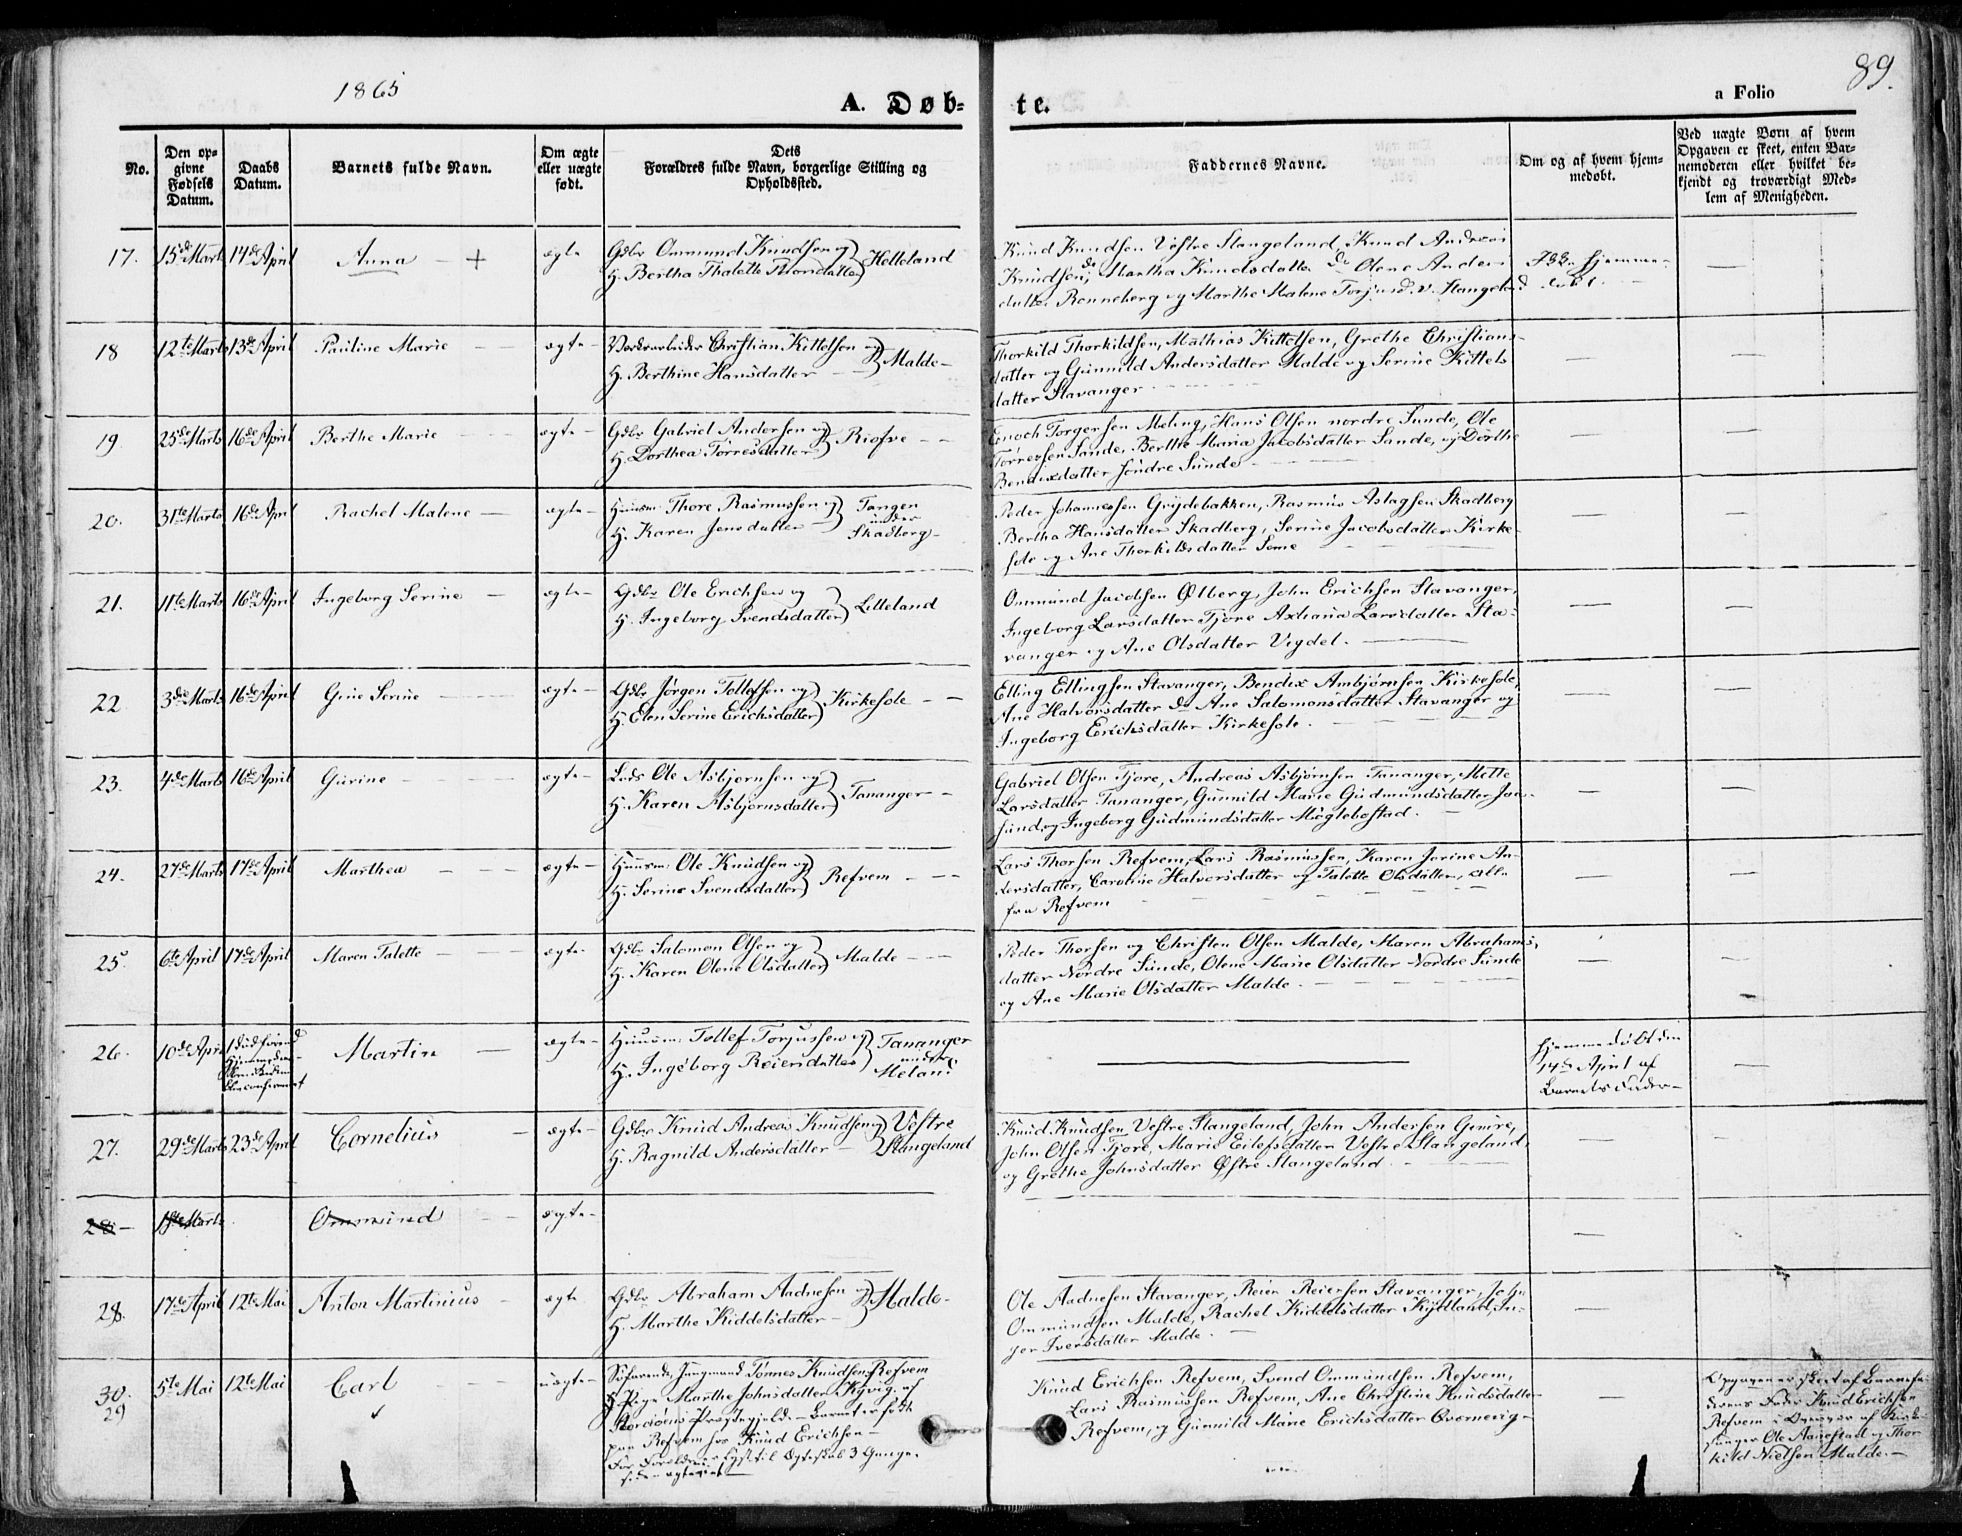 1865
A. Døb-
te.
89.
a Folio
No.
Den op-
givne
Fødsels
Datum.
Daabs
Datum.
Barnets fulde Navn.
Om ægte
eller uægte
født.
Dets
Forældres fulde Navn, borgerlige Stilling og
Opholdssted.
Faddernes Navne.
Om og af hvem hjem-
medøbt.
Ved uægte Børn af hvem
Opgaven er skeet, enten Bar-
nemoderen eller hvilket be-
kjendt og troværdigt Med-
lem af Menigheden.
17. 15de Marts 14de April Anna - + ægte
Gdbr Ommund Knudsen og
H. Bertha Thalette Thorsdatter Helleland
Knud Knudsen Vestre Stangeland, Knud Andreas
Knudsen do, Martha Knudsdatter do Olene Anders
datter Renneberg og Marthe Malene Torjusd. v. Stangeland
Ikke hjemme-
døbt.
18 12te Marts 13de April Pauline Marie - ægte -
Christian Kittelsen og
H. Berthine Hansdatter - Malde -
Thorkild Thorkildsen, Mathias Kittelsen, Grethe Christians-
datter og Gunnild Andersdatter Malde og Serine Kittels
datter Stavanger
19. 25de Marts 16de April Berthe Marie - ægte -
Gdbr Gabriel Andersen og
H. Dorthea Tørresdatter Riofve - -
Enoch Torgersen Meling, Hans Olsen nordre Sunde, Ole
Tørresen Sunde, Berthe Maria Jacobsdatter Sande, og Dorthe
Bendixdatter søndre Sunde -
20. 31te Marts 16de April Rachel Malene - ægte -
Huusm. Thore Rasmussen og
H. Karen Jensdatter - Tangen
under
Skadberg -
Peder Johannessen Grydebakken, Rasmus Aslagsen Skadberg
Bertha Hansdatter Skadberg, Serine Jacobsdatter Kirke-
sole og Ane Thorkildsdatter Some
21. 11te Marts 16de April Ingeborg Serine - ægte -
Gdbr Ole Erichsen og
H. Ingeborg Svendsdatter Litleland
Ommund Jacobsen Ølberg, John Erichsen Stavanger,
Ingeborg Larsdatter Tjore Larsdatter Sta-
vanger og Ane Olsdatter Vigdel. -
22. 3de Marts 16de April Gine Serine - ægte -
Gdbr Jørgen Tollefsen og
H. Elen Serine Erichsdatter Kirkesole - -
Elling Ellingsen Stavanger, Bendix Ambjørnsen Kirkesole,
Ane Halvorsdatter do Ane Salomonsdatter Stavanger og
Ingeborg Erichsdatter Kirkesole.
23. 4de Marts 16de April Gurine - ægte -
Lods Ole Asbjørnsen og
H. Karen Asbjørnsdatter Tananger -
Gabriel Olsen Tjore, Andreas Asbjørnsen Tananger, Mette
Larsdatter Tananger, Gunnild Marie Gudmundsdatter Jaa-
sund og Ingeborg Gudmundsdatter Myglebostad.
24. 27de Marts 17de April Marthea - ægte -
Huusm. Ole Knudsen og
H. Serine Svendsdatter Refvem - -
Lars Thorsen Refvem, Lars Rasmussen, Karen Serine An-
dersdatter, Caroline Halvorsdatter og Talette Olsdatter, alle
fra Refvem
25. 6te April 17de April Maren Talette - ægte -
Gdbr Salomon Olsen og
H. Karen Olene Olsdatter Malde - -
Peder Thorsen og Christen Olsen Malde, Maren Abrahams-
datter Nordre Sunde, Olene Marie Olsdatter Nordre Sunde
og Ane Marie Olsdatter Malde.
26. 10de April Martin - ægte -
Huusm. Tollef Torjussen og
H. Ingeborg Reiersdatter Tananger
under
Meland
hjemmedøbt den
14de April af
Barnets Fader -
27. 29de Marts 23de April Cornelius - ægte -
Gdbr Knud Andreas Knudsen og
H. Ragnild Andersdatter - Vestre
Stangeland
Knud Knudsen Vestre Stangeland, John Andersen Gimre,
John Olsen Tjore, Marie Eilefsdatter Vestre Stangeland,
og Grethe Johnsdatter Østre Stangeland. -
28 - Marts Ommund - ægte -
28. 17de April 12te Mai Anton Martinius - ægte
Gdbr Abraham Aadnesen og
H. Marthe Kiddelsdatter - Malde -
Ole Aadnesen Stavanger, Reier Reiersen Stavanger, John
Ommundsen Malde, Rachel Kiddelsdatter Kjelland, In-
ger Iversdatter Malde. -
30.
29
5te Mai 12te Mai Carl - uægte -
Søfarende Ungmand Tønnes Knudsen Refvem
og Pige Marthe Johnsdatter Kyvig af
Præstegjeld. - Barnet er født
paa Refvem hos Knud Erichsen -
til Ægteskab 3 Gange.
Knud Erichsen Refvem, Svend Ommundsen Refvem,
Lars Rasmussen Refvem, Ane Christine Knudsdatter
Refvem, og Gunnild Marie Erichsdatter
Opgaven er skeet af Barnefa-
derens Fader Knud Erichsen
Refvem i Overvær af Kirke-
sanger Ole Aanestad og Thor-
kild Nielsen Malde. -